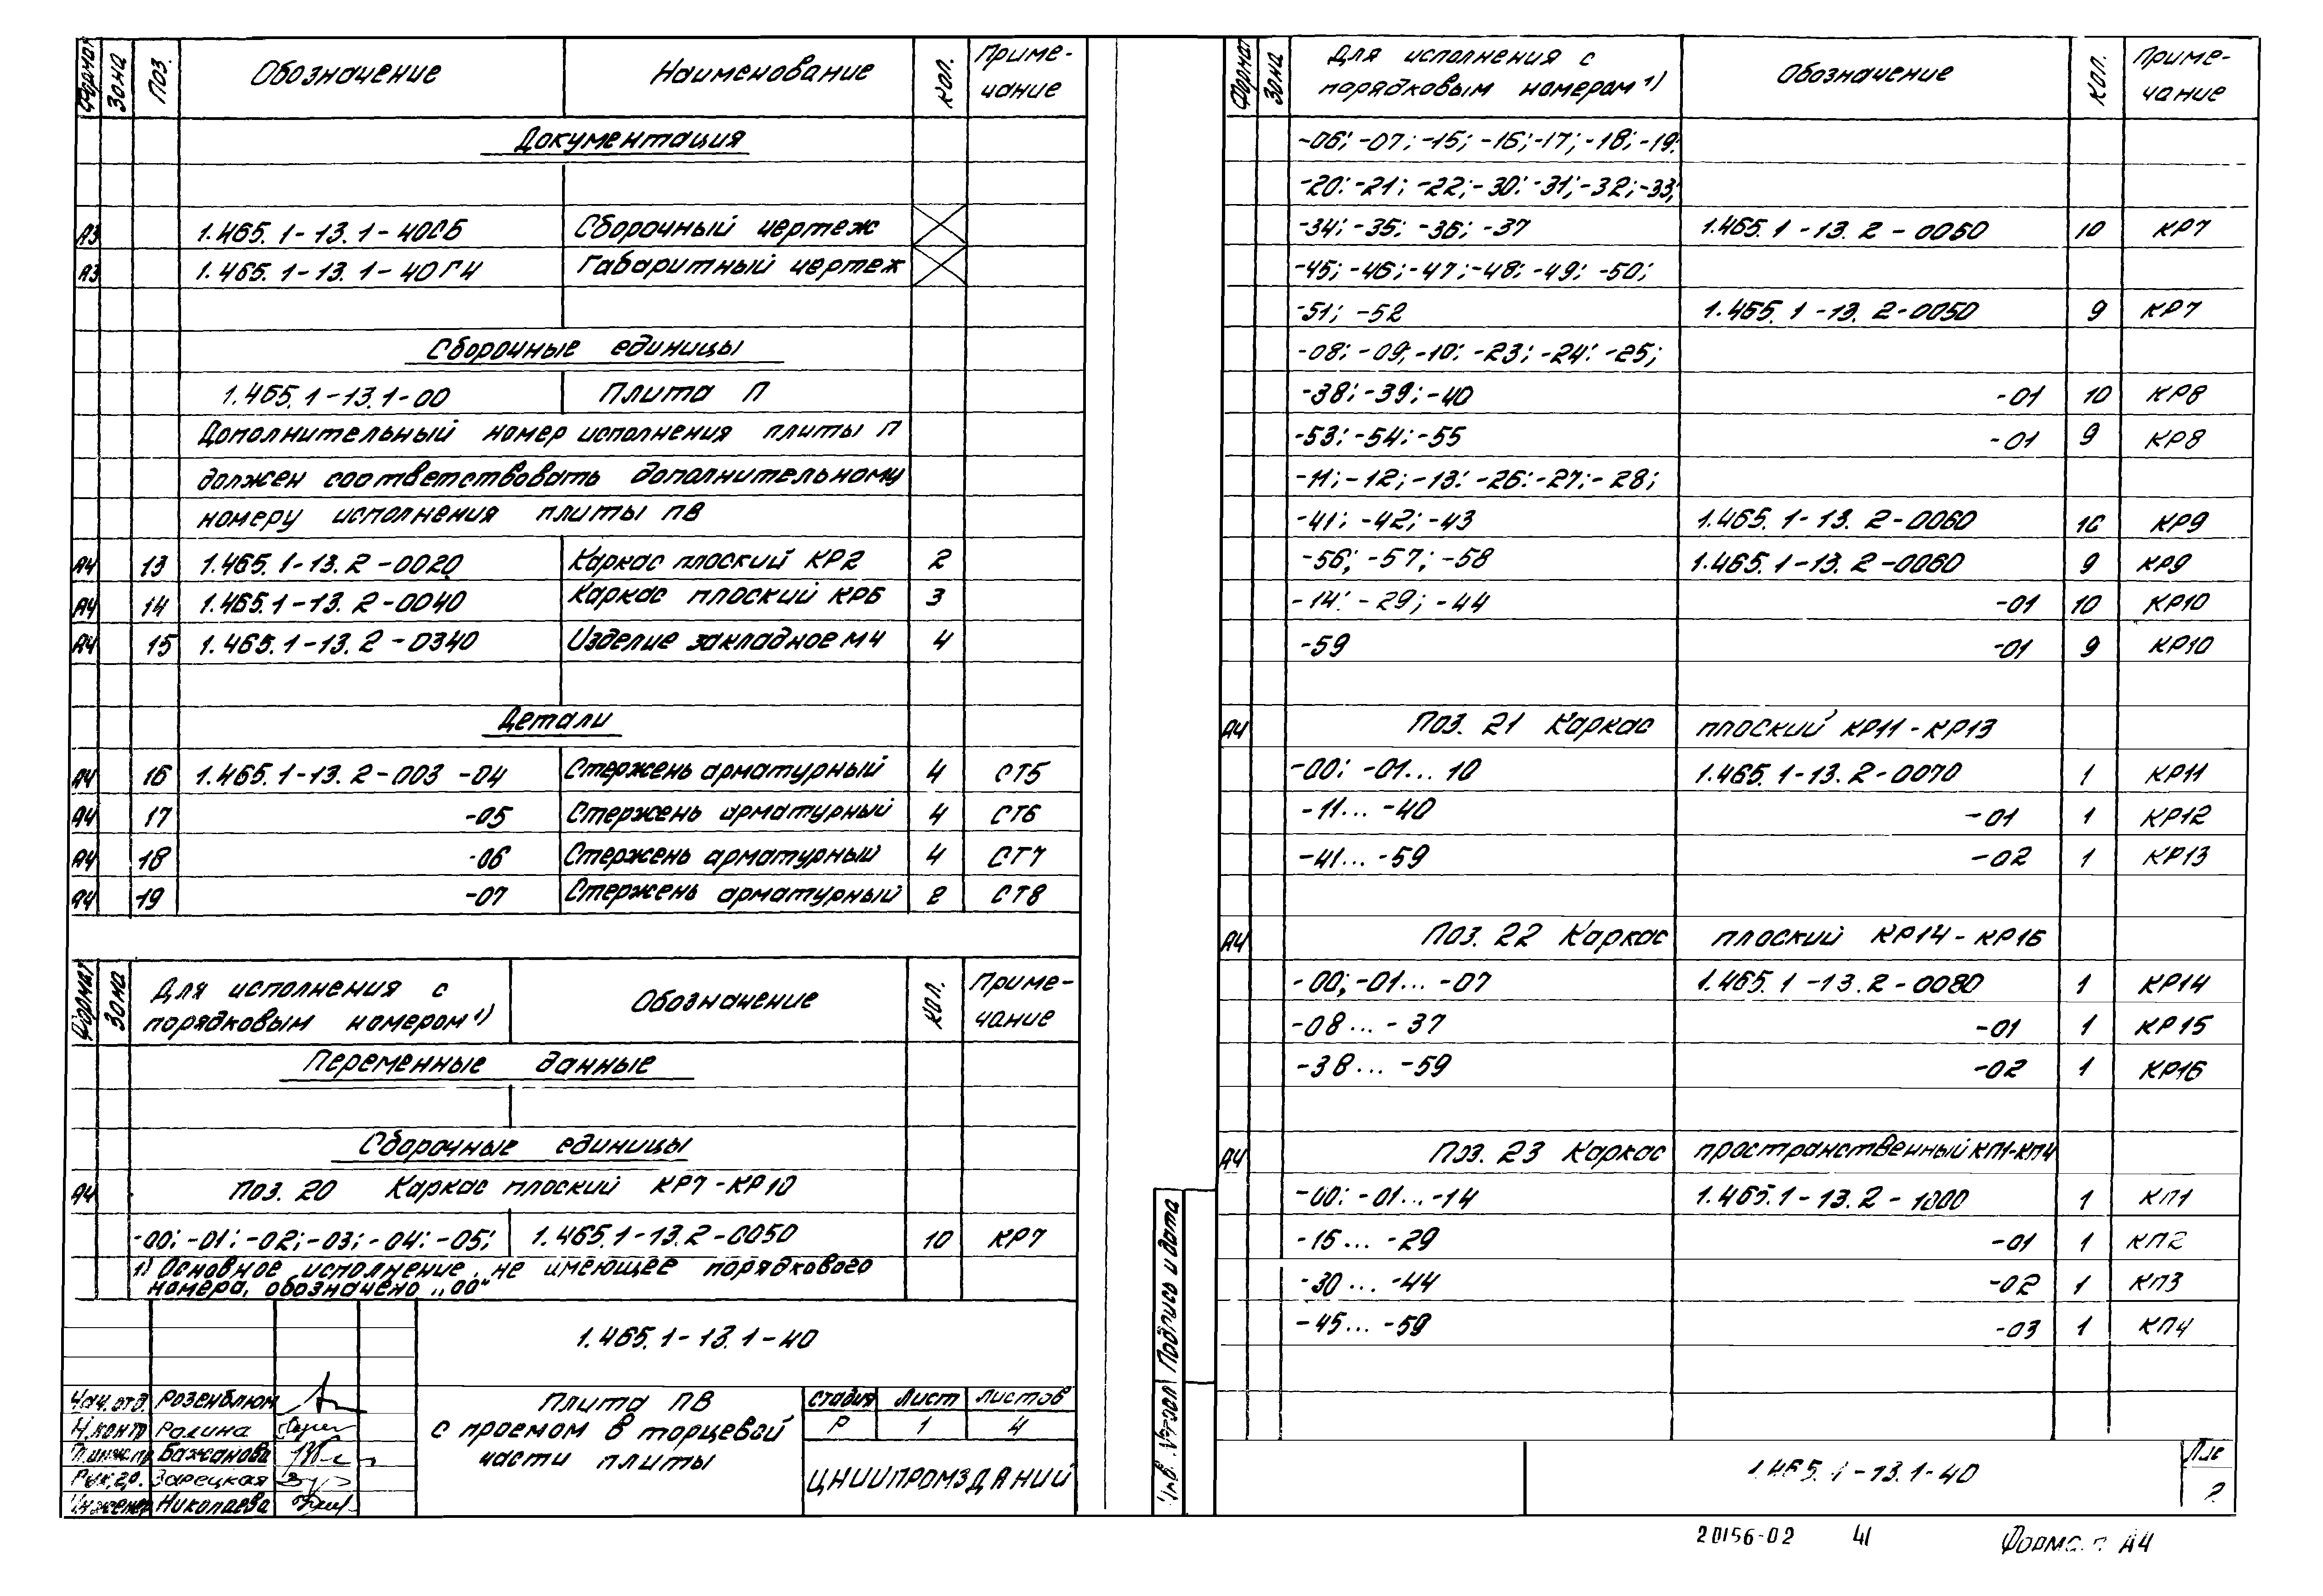 Формат Зона Поз. Обозначение Наименование Кол. Приме-
чание
Документация
А3 1.465.1-13.1-40СБ Сборочный чертеж
А3 1.465.1-13.1-40ГЧ Габаритный чертеж
Сборочные единицы
1.465.1-13.1-00 Плита П
Дополнительный номер исполнения плиты П
должен соответствовать дополнительному
номеру исполнения плиты ПВ
А4 13 1.465.1-13.2-0020 Каркас плоский КР2 2
А4 14 1.465.1-13.2-0040 Каркас плоский КР6 3
А4 15 1.465.1-13.2-0340 Изделие закладное М4 4
Детали
А4 16 1.465.1-13.2-003 -04 Стержень арматурный 4 СТ5
А4 17 -05 Стержень арматурный 4 СТ6
А4 18 -06 Стержень арматурный 4 СТ7
А4 19 -07 Стержень арматурный 2 СТ8
Формат Зона Для исполнения с
порядковым номером 1) Обозначение Кол. Приме-
чание
Переменные данные
Сборочные единицы
А4 Поз. 20 Каркас плоский КР7-КР10
-00; -01; -02; -03; -04; -05; 1.465.1-13.2-0050 10 КР7
1) Основное исполнение, не имеющее порядкового
номера, обозначено „00"
1.465.1-13.1-40
Нач.отд. Розенблюм
Н.контр Ралина
Гл.инж.пр Бажанова
Рук.гр. Зарецкая
Инженер Николаева
Плита ПВ
с проемом в торцевой
части плиты
Стадия Лист Листов
Р 1 4
ЦНИИПРОМЗДАНИЙ
Формат Зона Для исполнения с
порядковым номером 1) Обозначение Кол. Приме-
чание
-06; -07; -15; -16; -17; -18; -19;
-20; -21; -22; -30; -31; -32; -33;
-34; -35; -36; -37 1.465.1-13.2-0060 10 КР7
-45; -46; -47; -48; -49; -50;
-51; -52 1.465.1-13.2-0050 9 КР7
-08; -09; -10; -23; -24; -25;
-38; -39; -40 -01 10 КР8
-53; -54; -55 -01 9 КР8
-11; -12; -13; -26; -27; -28;
-41; -42; -43 1.465.1-13.2-0060 10 КР9
-56; -57; -58 1.465.1-13.2-0060 9 КР9
-14; -29; -44 -01 10 КР10
-59 -01 9 КР10
А4 Поз. 21 Каркас плоский КР11-КР13
-00; -01... 10 1.465.1-13.2-0070 1 КР11
-11... -40 -01 1 КР12
-41... -59 -02 1 КР13
А4 Поз. 22 Каркас плоский КР14-КР16
-00; -01... -07 1.465.1-13.2-0080 1 КР14
-08... -37 -01 1 КР15
-38... -59 -02 1 КР16
А4 Поз. 23 Каркас пространственный КП1-КП4
-00; -01...-14 1.465.1-13.2-1000 1 КП1
-15... -29 -01 1 КП2
-30... -44 -02 1 КП3
-45... -59 -03 1 КП4
Подпись и дата
1.465.1-13.1-40
Лис
2
20156-02 41 Формат А4